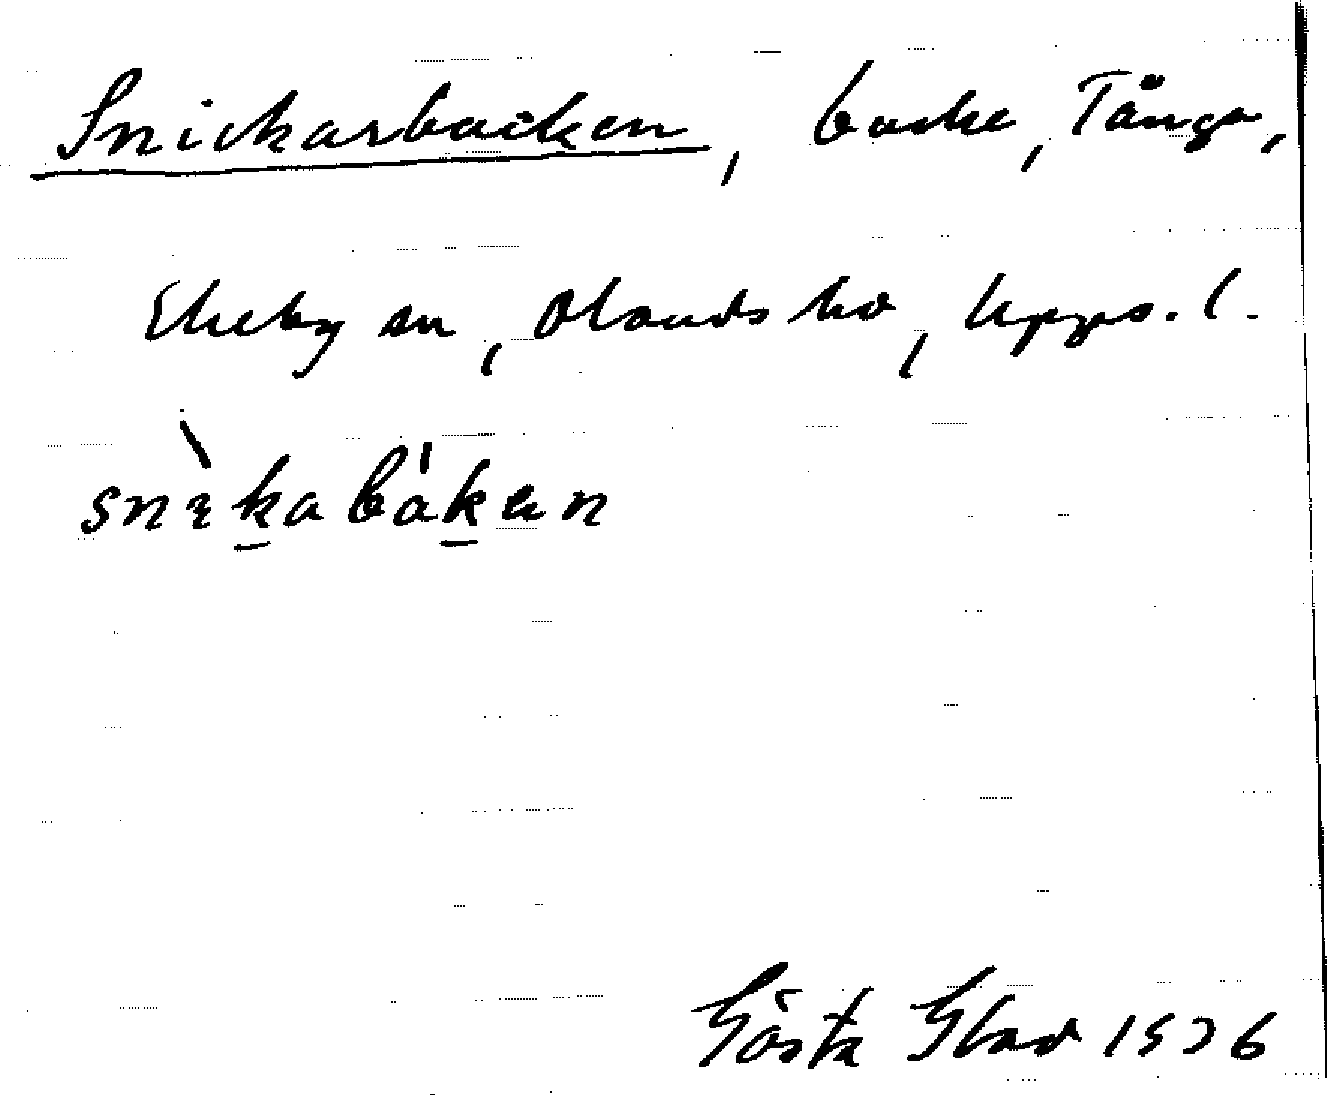 Snickarbacken, backe, Tånga,
Ekeby sn, Olands hd, Upps. l.
snìkabákan
Gösta Glad 1926